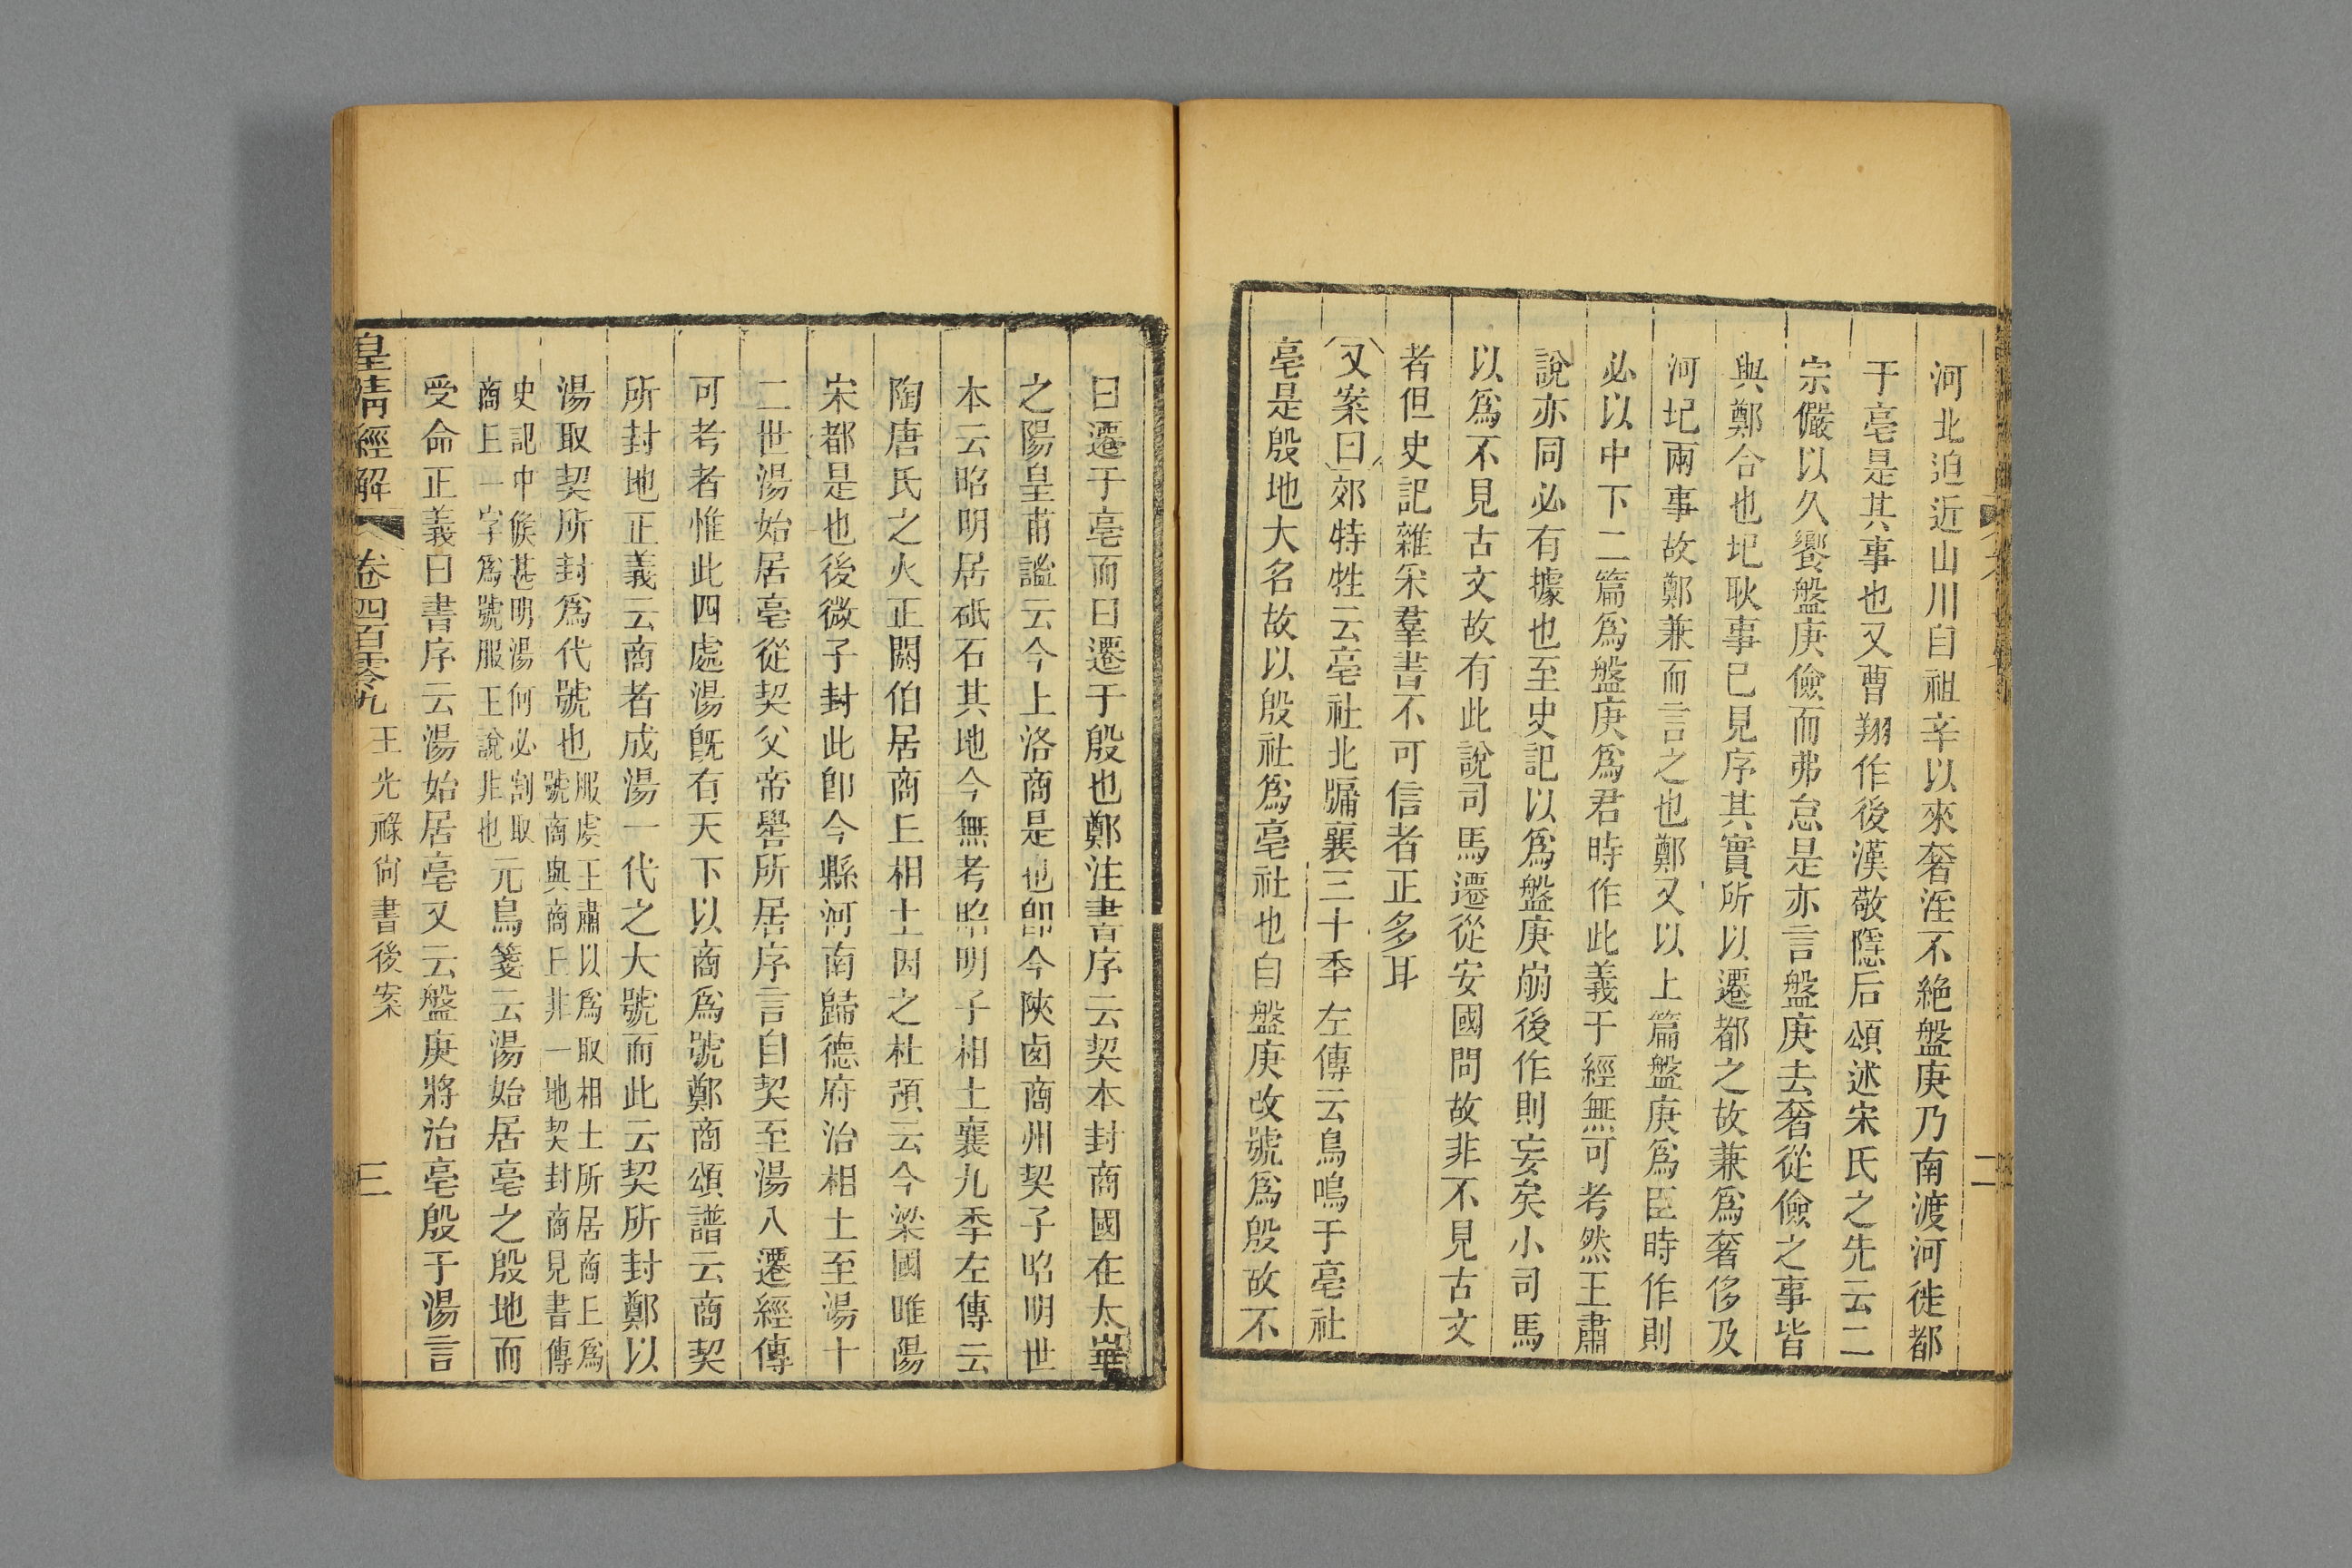 河北迫近山川自祖辛以來奢淫不絶盤庚乃南渡河徙都
于亳是其事也又曹翔作後漢敬隱后頌述宋氏之先云二
宗儼以久饗盤庚儉而弗怠是亦言盤庚去奢從儉之事皆
與鄭合也圯耿事已見序其實所以遷都之故兼爲奢侈及
河圯兩事故鄭兼而言之也鄭又以上篇盤庚爲臣時作則
必以中下二篇爲盤庚爲君時作此義于經無可考然王肅
說亦同必有據也至史記以爲盤庚崩後作則妄矣小司馬
以爲不見古文故有此說司馬遷從安國問故非不見古文
者但史記雜釆羣書不可信者正多耳
又案曰郊特牲云亳社北牖襄三十秊左傳云鳥鳴于亳社
亳是殷地大名故以殷社爲亳社也自盤庚改號爲殷故不
二
曰遷于亳而曰遷于殷也鄭注書序云契本封商國在太華
之陽皇甫謐云今上洛商是也卽今陝㢴商州契子昭明世
本云昭明居砥石其地今無考昭明子相土襄九秊左傳云
陶唐氏之火正閼伯居商丘相土因之杜預云今梁國睢陽
宋都是也後微子封此卽今縣河南歸德府治相土至湯十
二世湯始居亳從契父帝嚳所居序言自契至湯八遷經傳
可考者惟此四處湯旣有天下以商爲號鄭商頌譜云商契
所封地正義云商者成湯一代之大號而此云契所封鄭以
湯取契所封爲代號也服虔王肅以爲取相土所居商丘爲號商與商丘非一地契封商見書傳
史記中候甚明湯何必割取商丘一字爲號服王說非也元鳥箋云湯始居亳之殷地而
受命正義曰書序云湯始居亳又云盤庚將治亳殷于湯言
皇清經解
卷四百零九
王光祿尙書後案
三